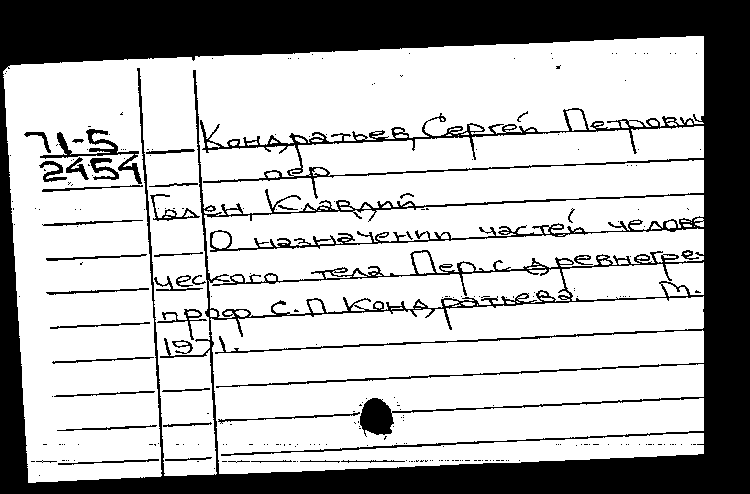 71-5
2454
Кондратьев, Сергей Петрович
пер
Гален, Клавдий.
О назначении частей челове
ческого тела. Пер. с древнегре-
проф С.П Кондратьева. М.
1971.